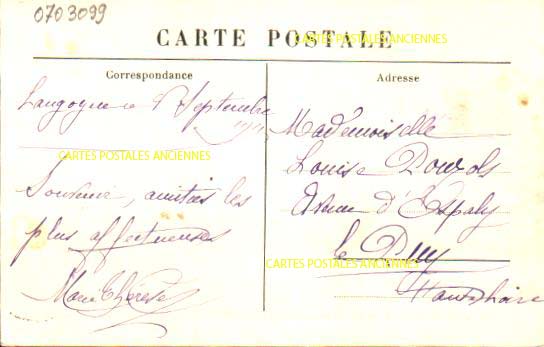 0703099
CARTE POSTALE
CARTES POSTALES ANCIENNES
Correspondance
Langogne le 8 Septembre
CARTES POSTALES ANCIENNES
Souvenir, amitiés les
plus affectueuses
Marie Thérèse
Adresse
Mademoiselle
Louise Pouzols
Avenue d'Espaly
le Puy
CARTES POSTALES ANCIENNES
Haute Loire